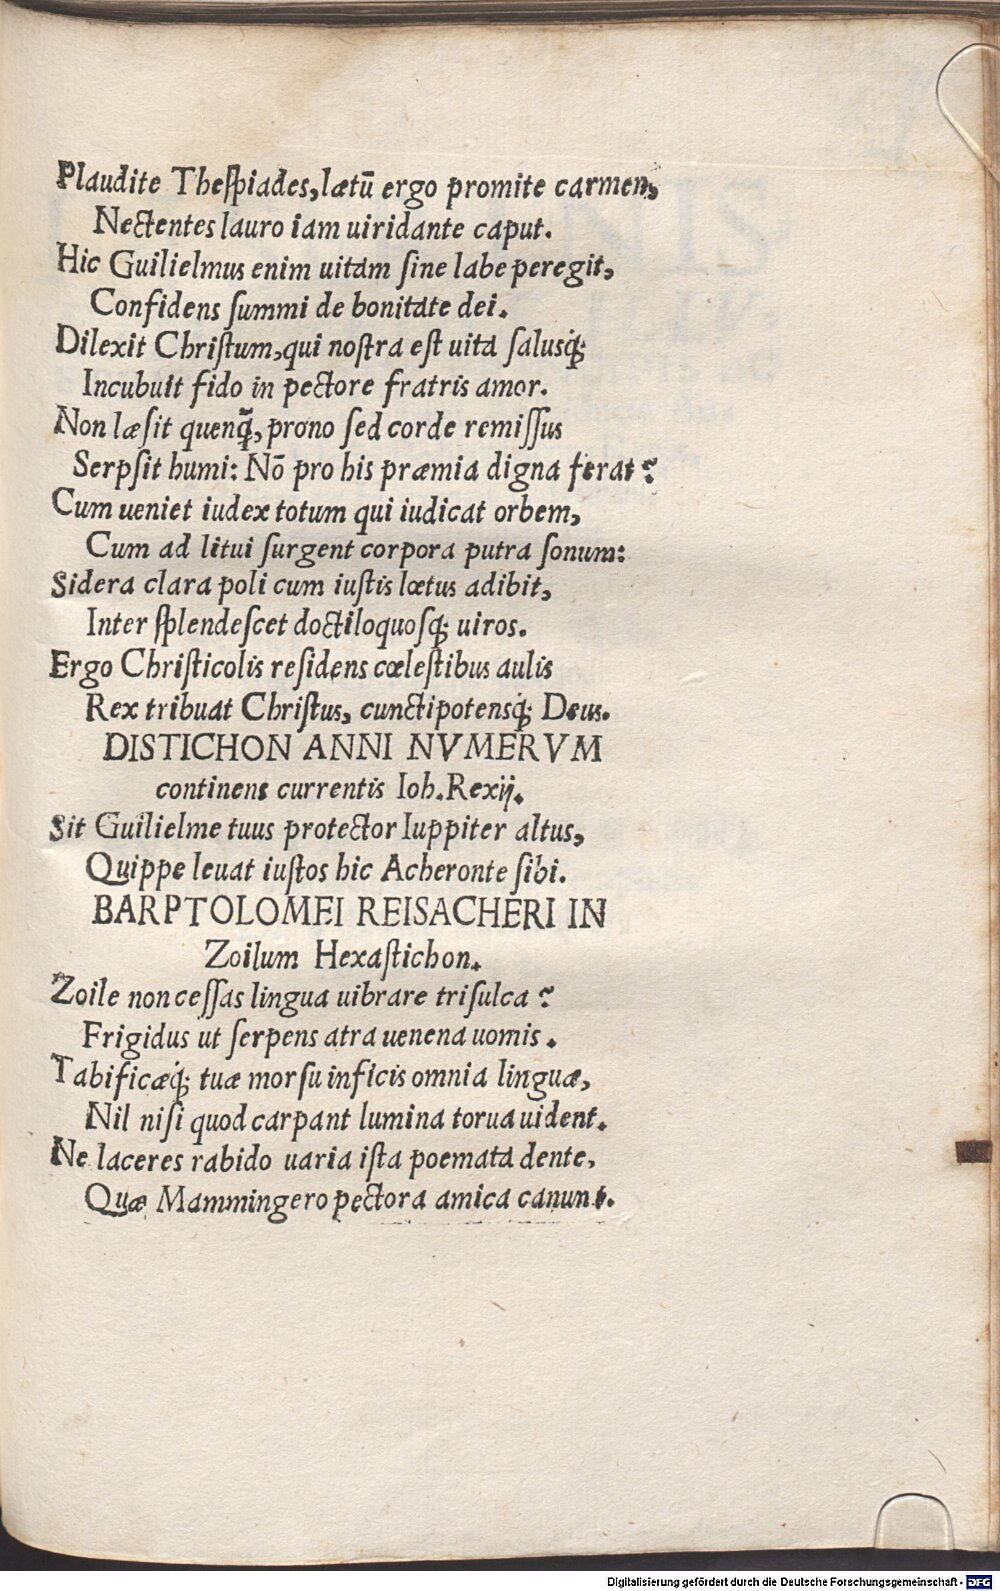 Plaudite Thespiades, lætū ergo promite carmen,
Nectentes lauro iam uiridante caput.
Hic Guilielmus enim uitam sine labe peregit,
Confidens summi de bonitate dei.
Dilexit Christum, qui nostra est uita salusq́;
Incubuit fido in pectore fratris amor.
Non læsit quenq̃, prono sed corde remissus
Serpsit humi: Nō pro his præmia digna ferat?
Cum ueniet iudex totum qui iudicat orbem,
Cum ad litui surgent corpora putra sonum:
Sidera clara poli cum iustis lœtus adibit,
Inter splendescet doctiloquosq́; uiros.
Ergo Christicolis residens cœlestibus aulis
Rex tribuat Christus, cunctipotensq́; Deus.
DISTICHON ANNI NVMERVM
continens currentis Ioh. Rexij.
Sit Guilielme tuus protector Iuppiter altus,
Quippe leuat iustos hic Acheronte sibi.
BARPTOLOMEI REISACHERI IN
Zoilum Hexastichon.
Zoile non cessas lingua uibrare trisulca?
Frigidus ut serpens atra uenena uomis.
Tabificæq́; tuæ morsu inficis omnia linguæ,
Nil nisi quod carpant lumina torua uident.
Ne laceres rabido uaria ista poemata dente,
Quæ Mammingero pectora amica canunt.
Digitalisierung gefördert durch die Deutsche Forschungsgemeinschaft - DFG